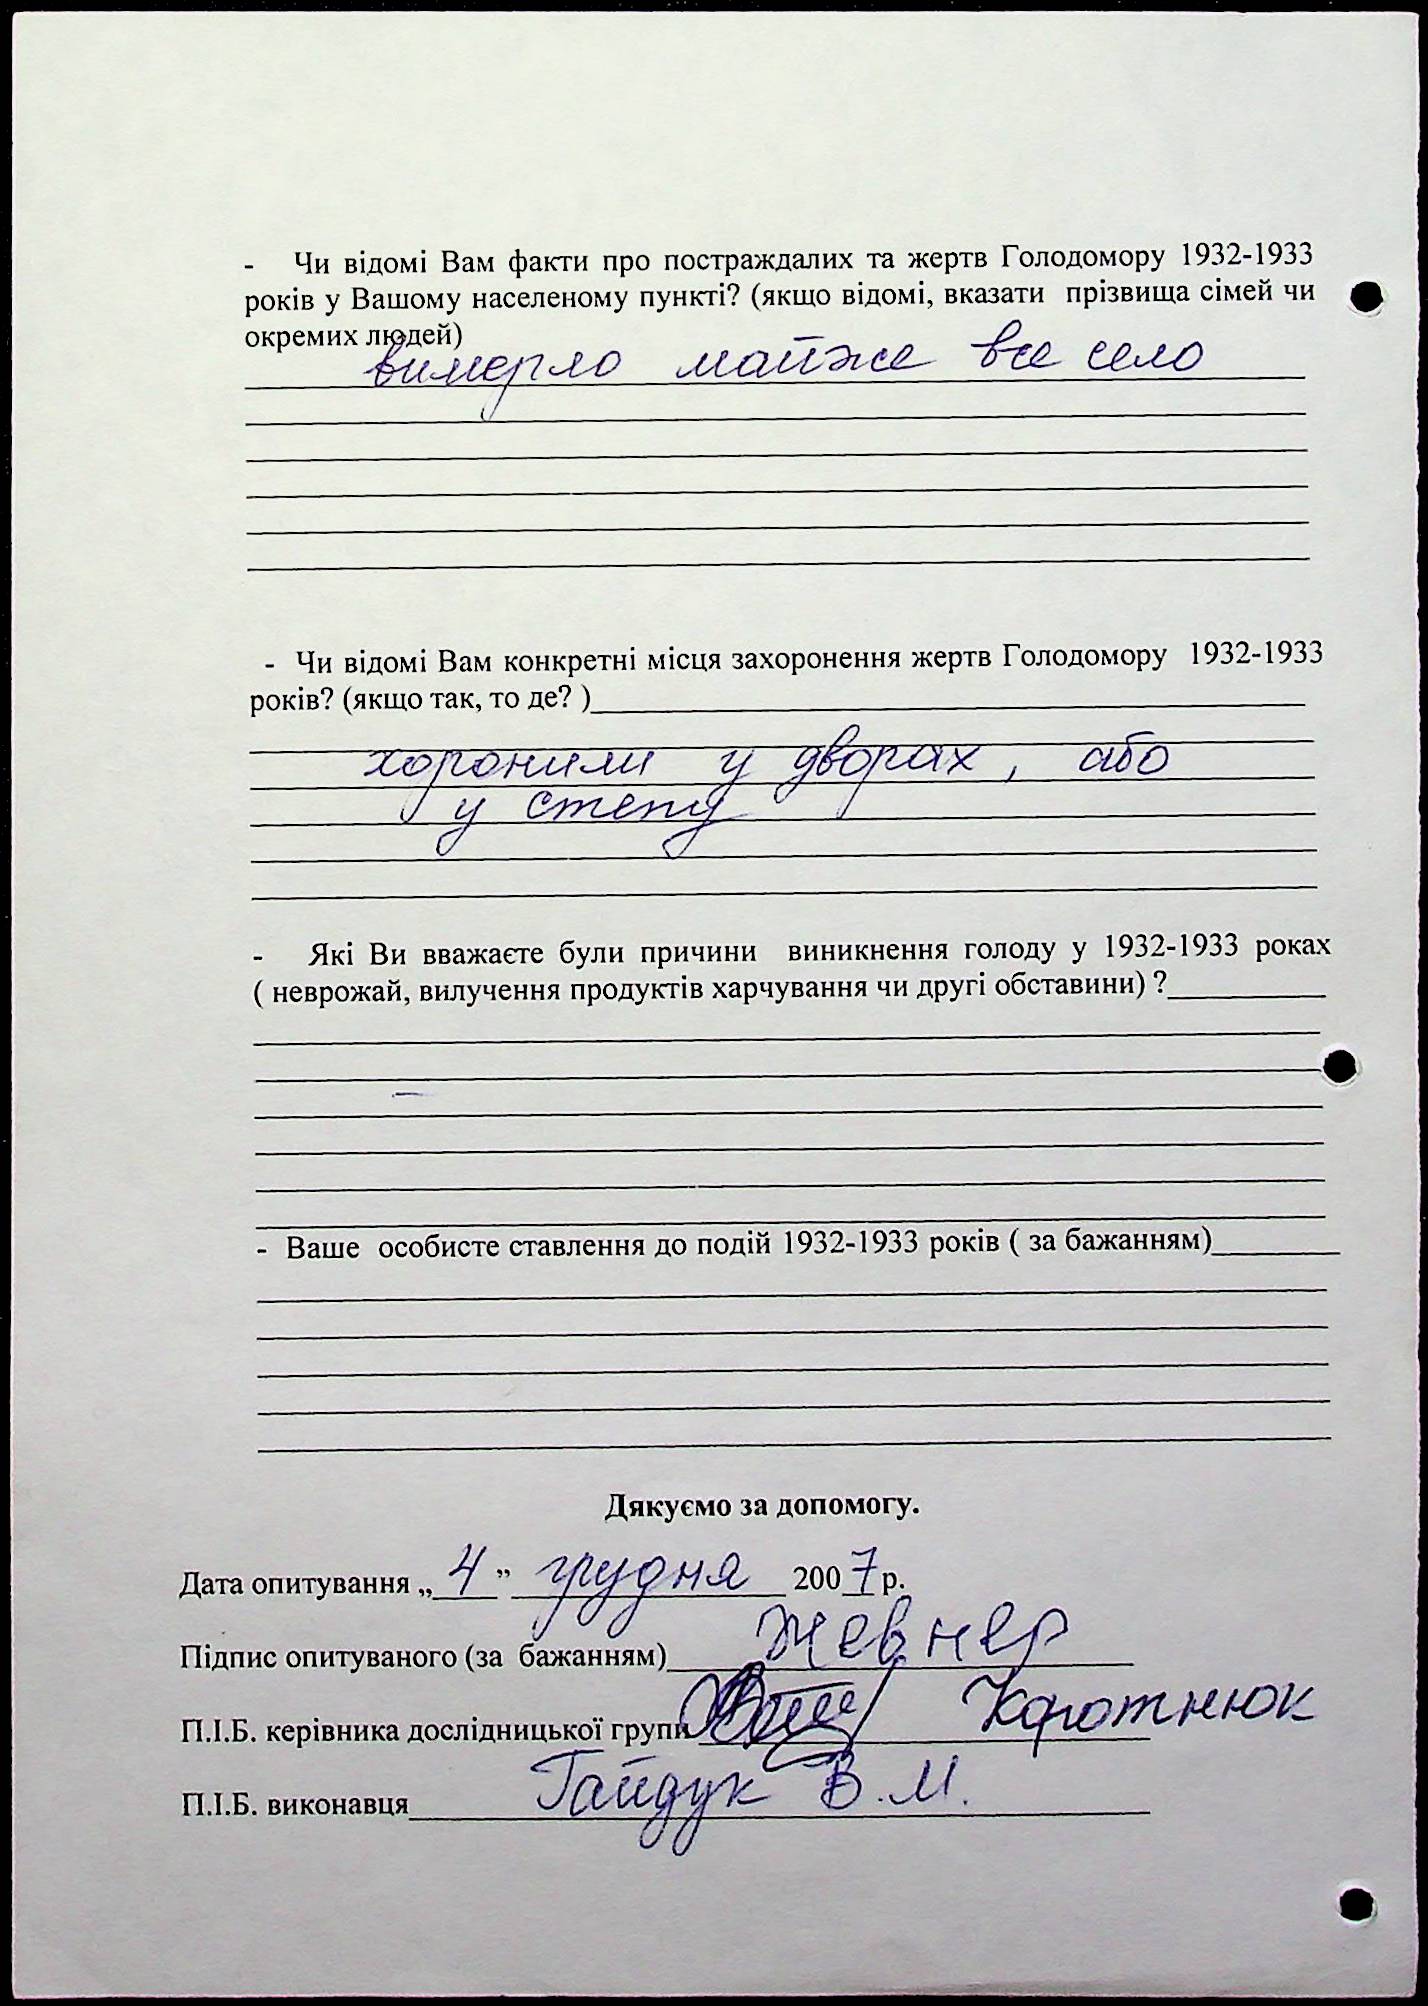 - Чи відомі Вам факти про постраждалих та жертв Голодомору 1932-1933
років у Вашому населеному пункті? (якщо відомі, вказати прізвища сімей чи
окремих людей)
вимерло майже все село
- Чи відомі Вам конкретні місця захоронення жертв Голодомору 1932-1933
років? (якщо так, то де? )
хоронили у дворах, або
у степу
- Які Ви вважаєте були причини виникнення голоду у 1932-1933 роках
( неврожай, вилучення продуктів харчування чи другі обставини) ?
–
- Ваше особисте ставлення до подій 1932-1933 років ( за бажанням)
Дякуємо за допомогу.
Дата опитування „4” грудня 2007 р.
Підпис опитуваного (за бажанням) Жевнер
П.І.Б. керівника дослідницької групи Коротнюк
П.І.Б. виконавця Гайдук В.М.